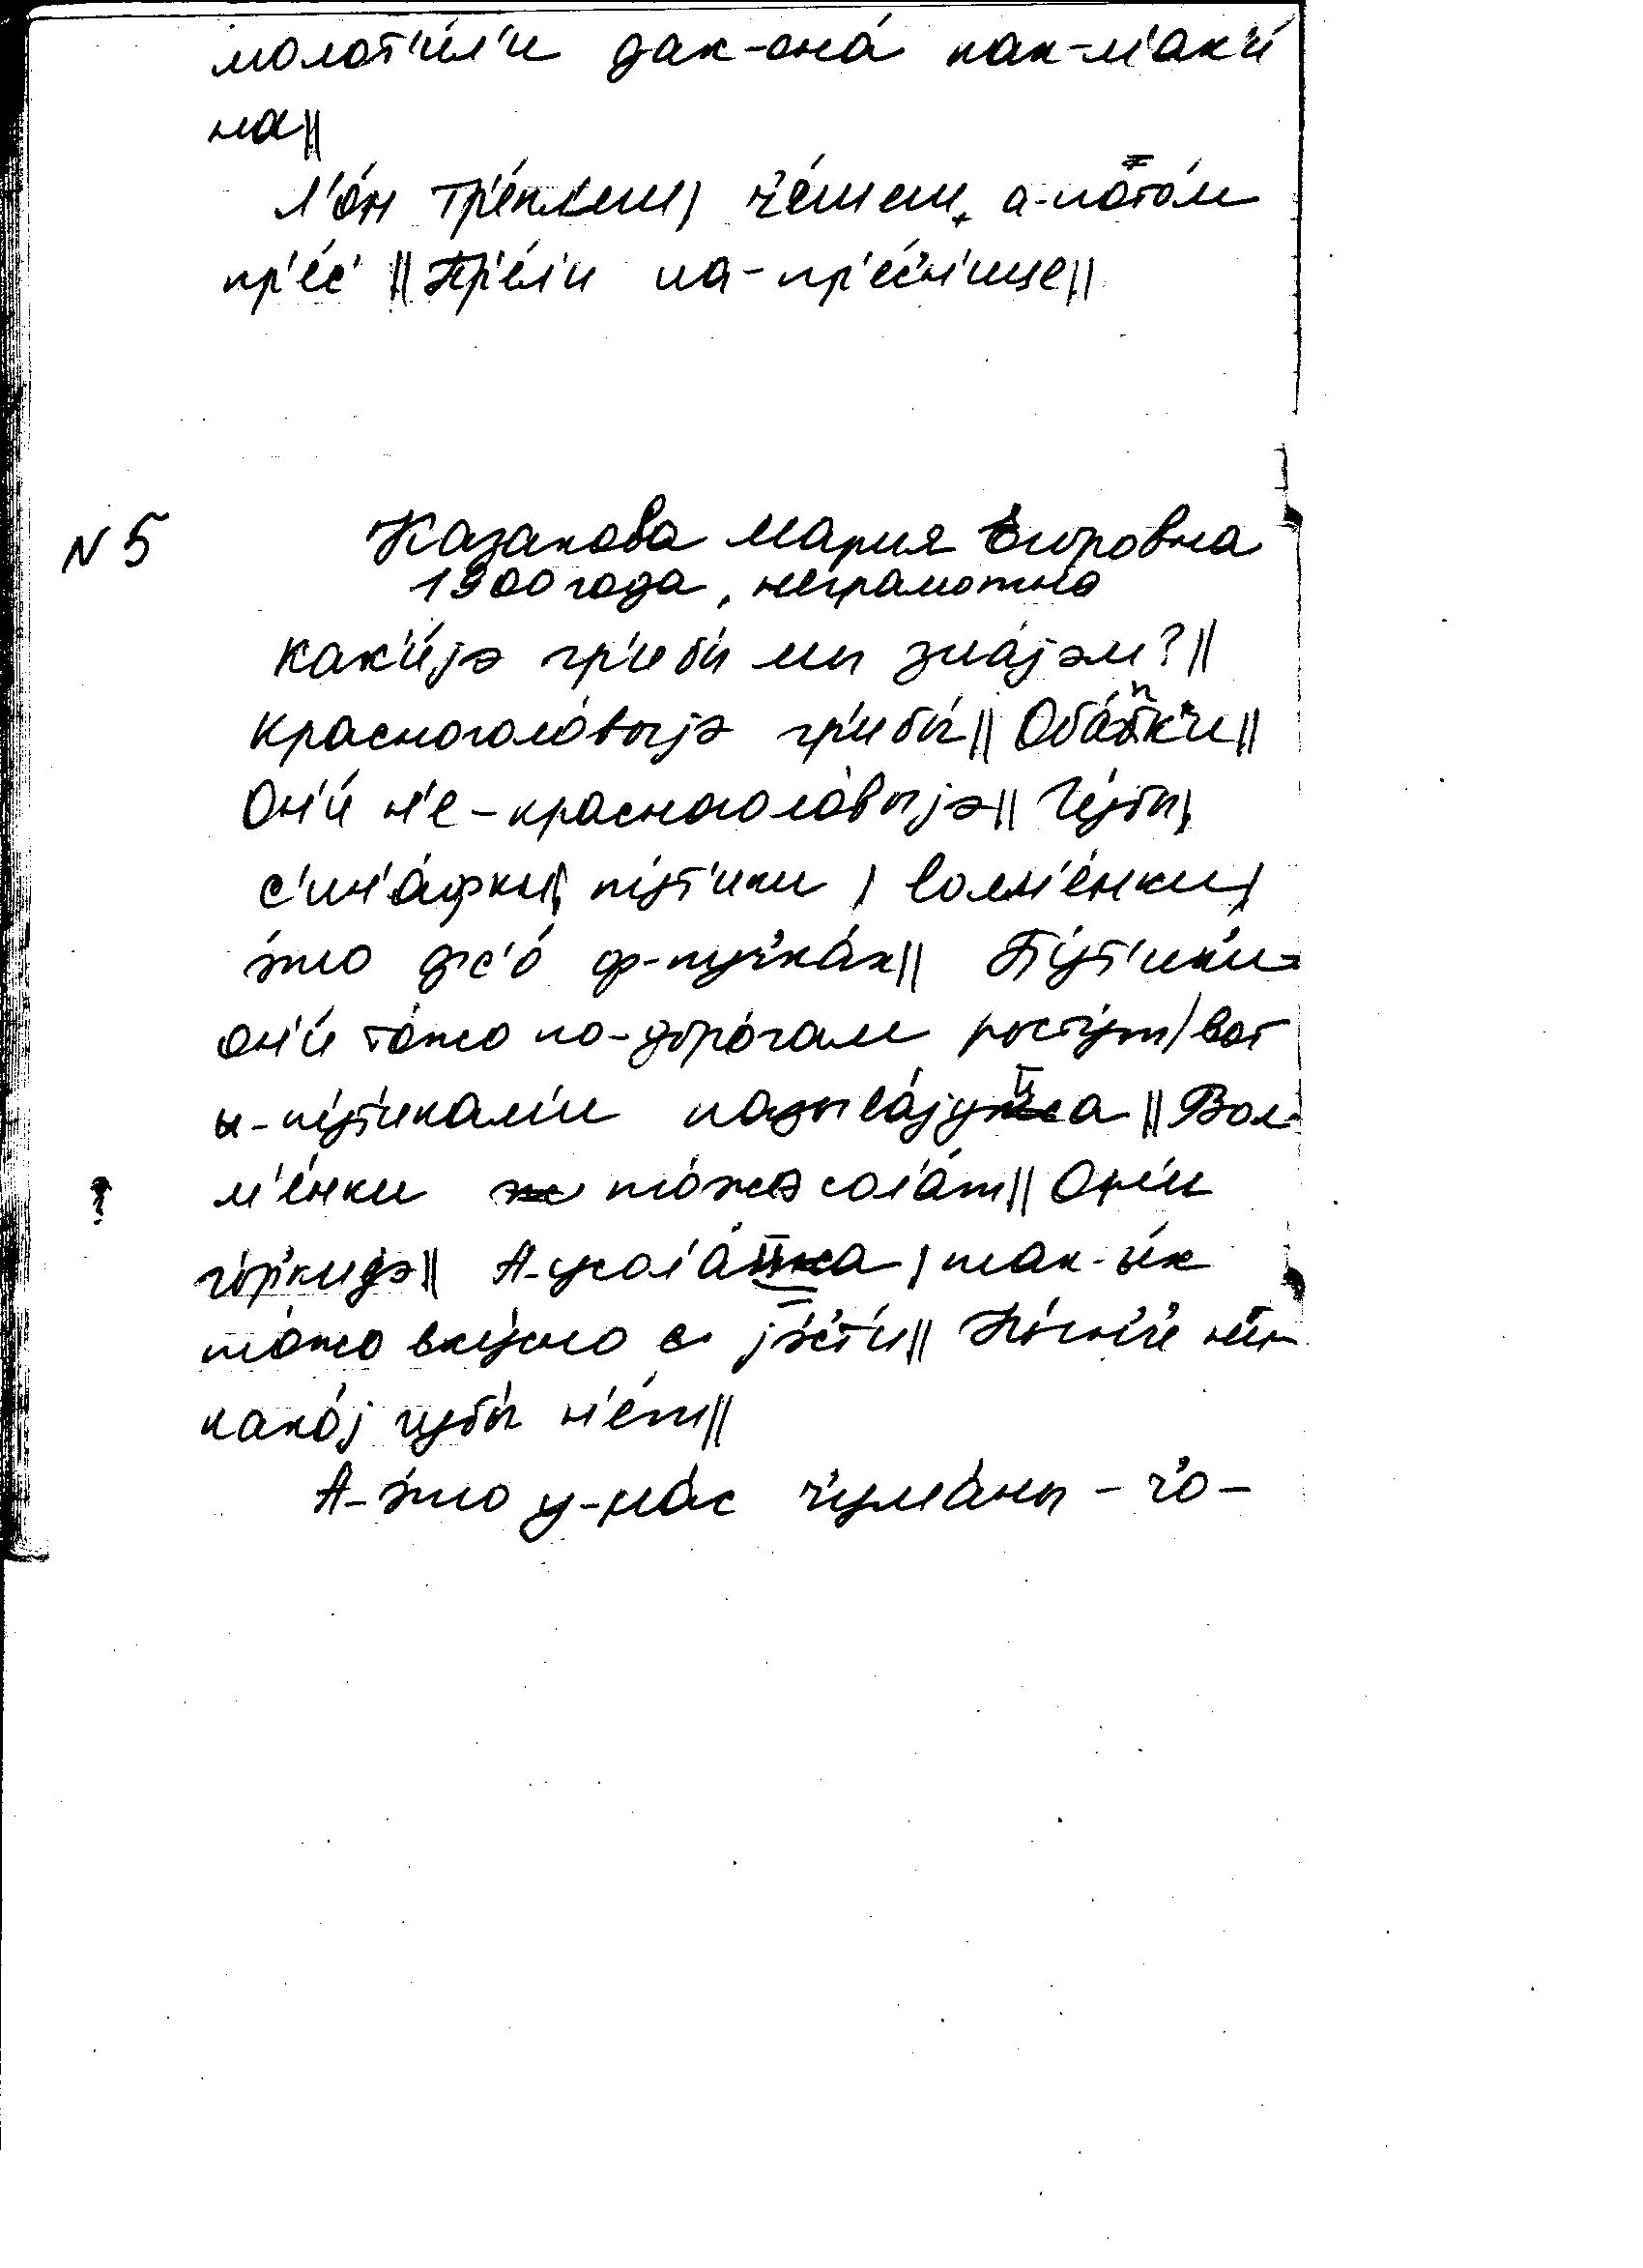 молот'и́л'и дак-она́ как-м'ак'и́
на||
Л'о́н тр'е́плеш| ч'е́шеш, а-пото́м
пр'е́с'||Пр'е́л'и на-пр'е́с'н'ице||
N 5 Казакова Мария Егоровна
1900 года, неграмотна
как'и́jэ гр'ибы́ мы зна́jэм?||
красноголо́выjэ гр'ибы́|| Оба́пк'и||
Он'и́ н'е-красноголо́выjэ|| Гу́бы|
с'ин'а́фки| пу́т'ики | волм'е́нки|
э́то фс'о́ ф-пучка́х|| Пу́т'ик'и-
он'и́ то́жо по-доро́гам росту́т|вот
ы-пу́т'икам'и называ́jуцса || Вол-
? м'е́нки то́жэ сол'а́т|| Он'и́
го́р'киjэ|| А-усол'а́цца | так-ы́х
то́жо вку́сно jэ́с'т'и|| Ны́н'ч'е н'и-
како́j губы́ н'е́т||
А-э́то у-на́с ч'ума́ны - ч'о-